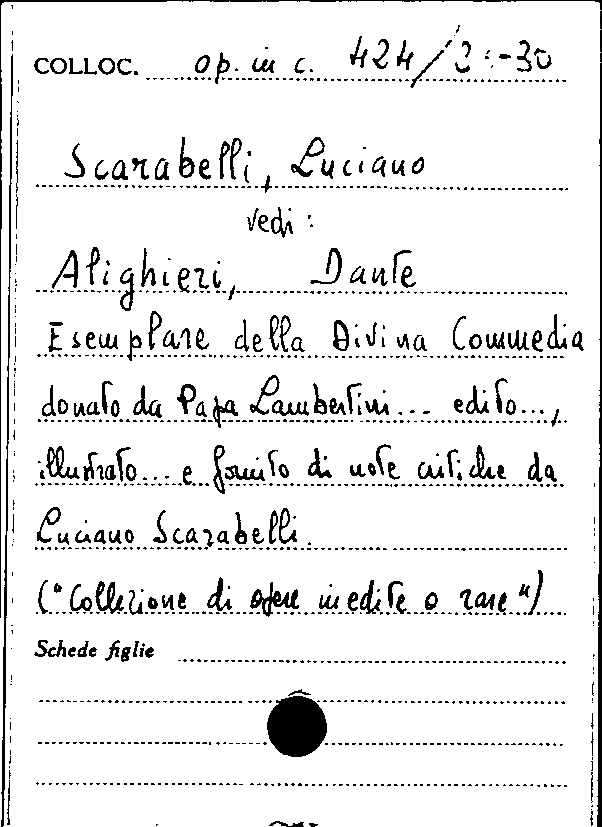 COLLOC. op. in c. 424/2 -30
Scarabelli, Luciano
vedi:
Alighieri, Dante
Esemplare della Divina Commedia
donato da Papa Lambertini... edito...,
illustrato... e fornito di note critiche da
Luciano Scarabelli.
("Collezione di opere inedite o rare")
Schede figlie